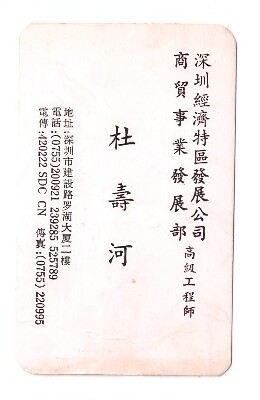 深圳經濟特區發展公司
商貿事業發展部 高級工程師
杜壽河
地址:深圳市建設路罗湖大厦二樓
電話:(0755)200921 239285 525789
電傳:420222 SDC CN 傳真:(0755) 220995